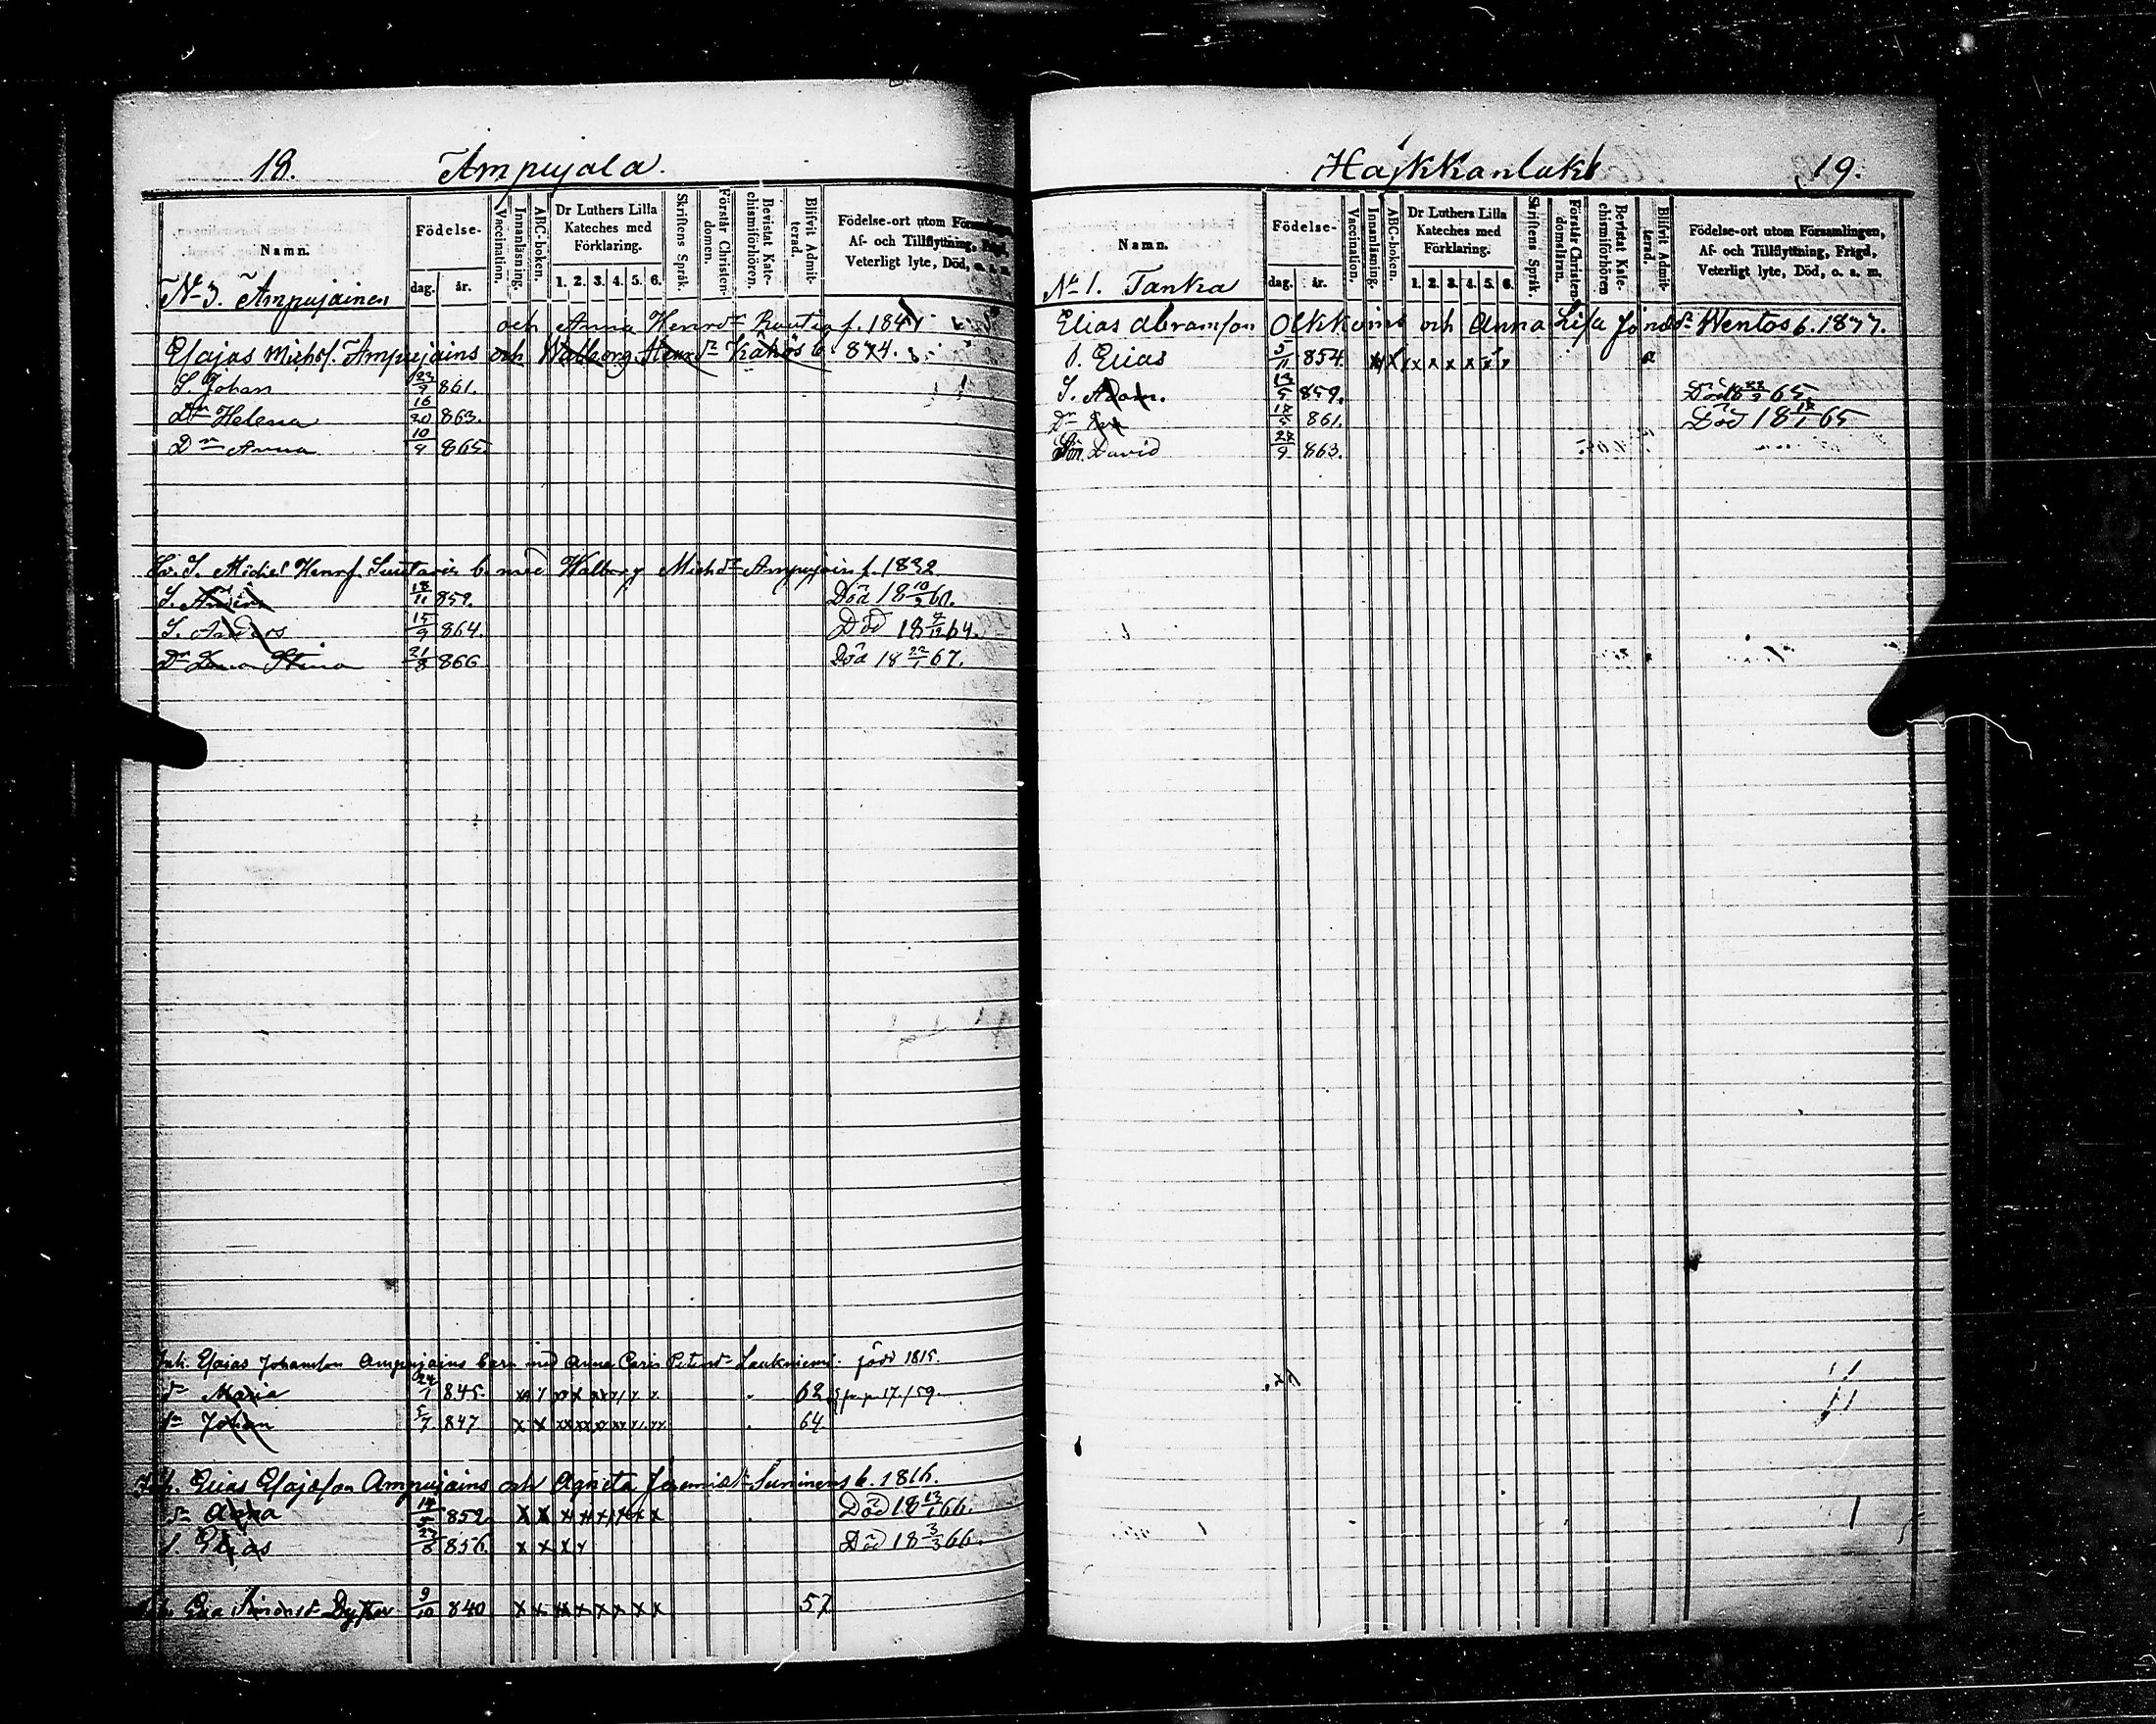 18. Ampujala.
Namn.
Födelse-
dag. år.
Vaccination.
Innanläsning.
ABC-boken.
Dr Luthers Lilla Kateches med Förklaring.
1. 2. 3. 4. 5. 6.
Skriftens Språk.
Förstår Christendomen.
Bevistat Katechismiförhören.
Blifvit Admitterad.
Födelse-ort utom Församlingen,
Af- och Tillflyttning, Frägd,
Veterligt lyte, Död, o. s. m.
No 3. Ampujainen
och Anna Henrdr Rautia f. 184
Esajas Michsf. Ampujains och Walborg Henrdr b. 874.
S. Johan 23/9 861.
Dr Helena 16/20 863.
Dr Anna 10/9 865.
Michel Henrf. b. med Walborg Michdr Ampujain f. 1832
S. 18/11 859. Död 18 10/2 61.
S. Anders 15/9 864. Död 18 64.
Dr Lena Stina 21/8 866 Död 18 22/1 67.
Inh. Esajas Johansson Ampujains barn med Anna Caris Petersdr Laukniemi. född 1815.
dr Maria 24/1 845. x x x x x x x x 62 17/59.
sn Johan 5/7 847. x x xx xx xx xx x xx 64
Inh. Elias Esajasson Ampujains och Agneta Jeremidr Suninens b. 1816.
Anna 14 852. x x x x x x x x Död 18 13/1 66.
s. Elias 23/8 856 x x x x Död 18 3/3 66.
Eva Simonsdr 9/10 840 x x x x x x x x 57
Häkkanlaks 19.
Namn.
Födelse-
dag. år.
Vaccination.
Innanläsning.
ABC-boken.
Dr Luthers Lilla Kateches med Förklaring.
1. 2. 3. 4. 5. 6.
Skriftens Språk.
Förstår Christendomsläran.
Bevistat Katechismiförhören
Blifvit Admitterad.
Födelse-ort utom Församlingen,
Af- och Tillflyttning, Frägd,
Veterligt lyte, Död, o. s. m.
No 1. Tanka
Elias Abramsson Olkkoins och Anna Lisa Jönsdr Wentos b. 1877.
s. Elias 5/11 854. x x x x x x x x a
S. Adam. 13/5 859. Död 18 65
Dr Eva 861. Död 18 65
Son David 24/9 863.